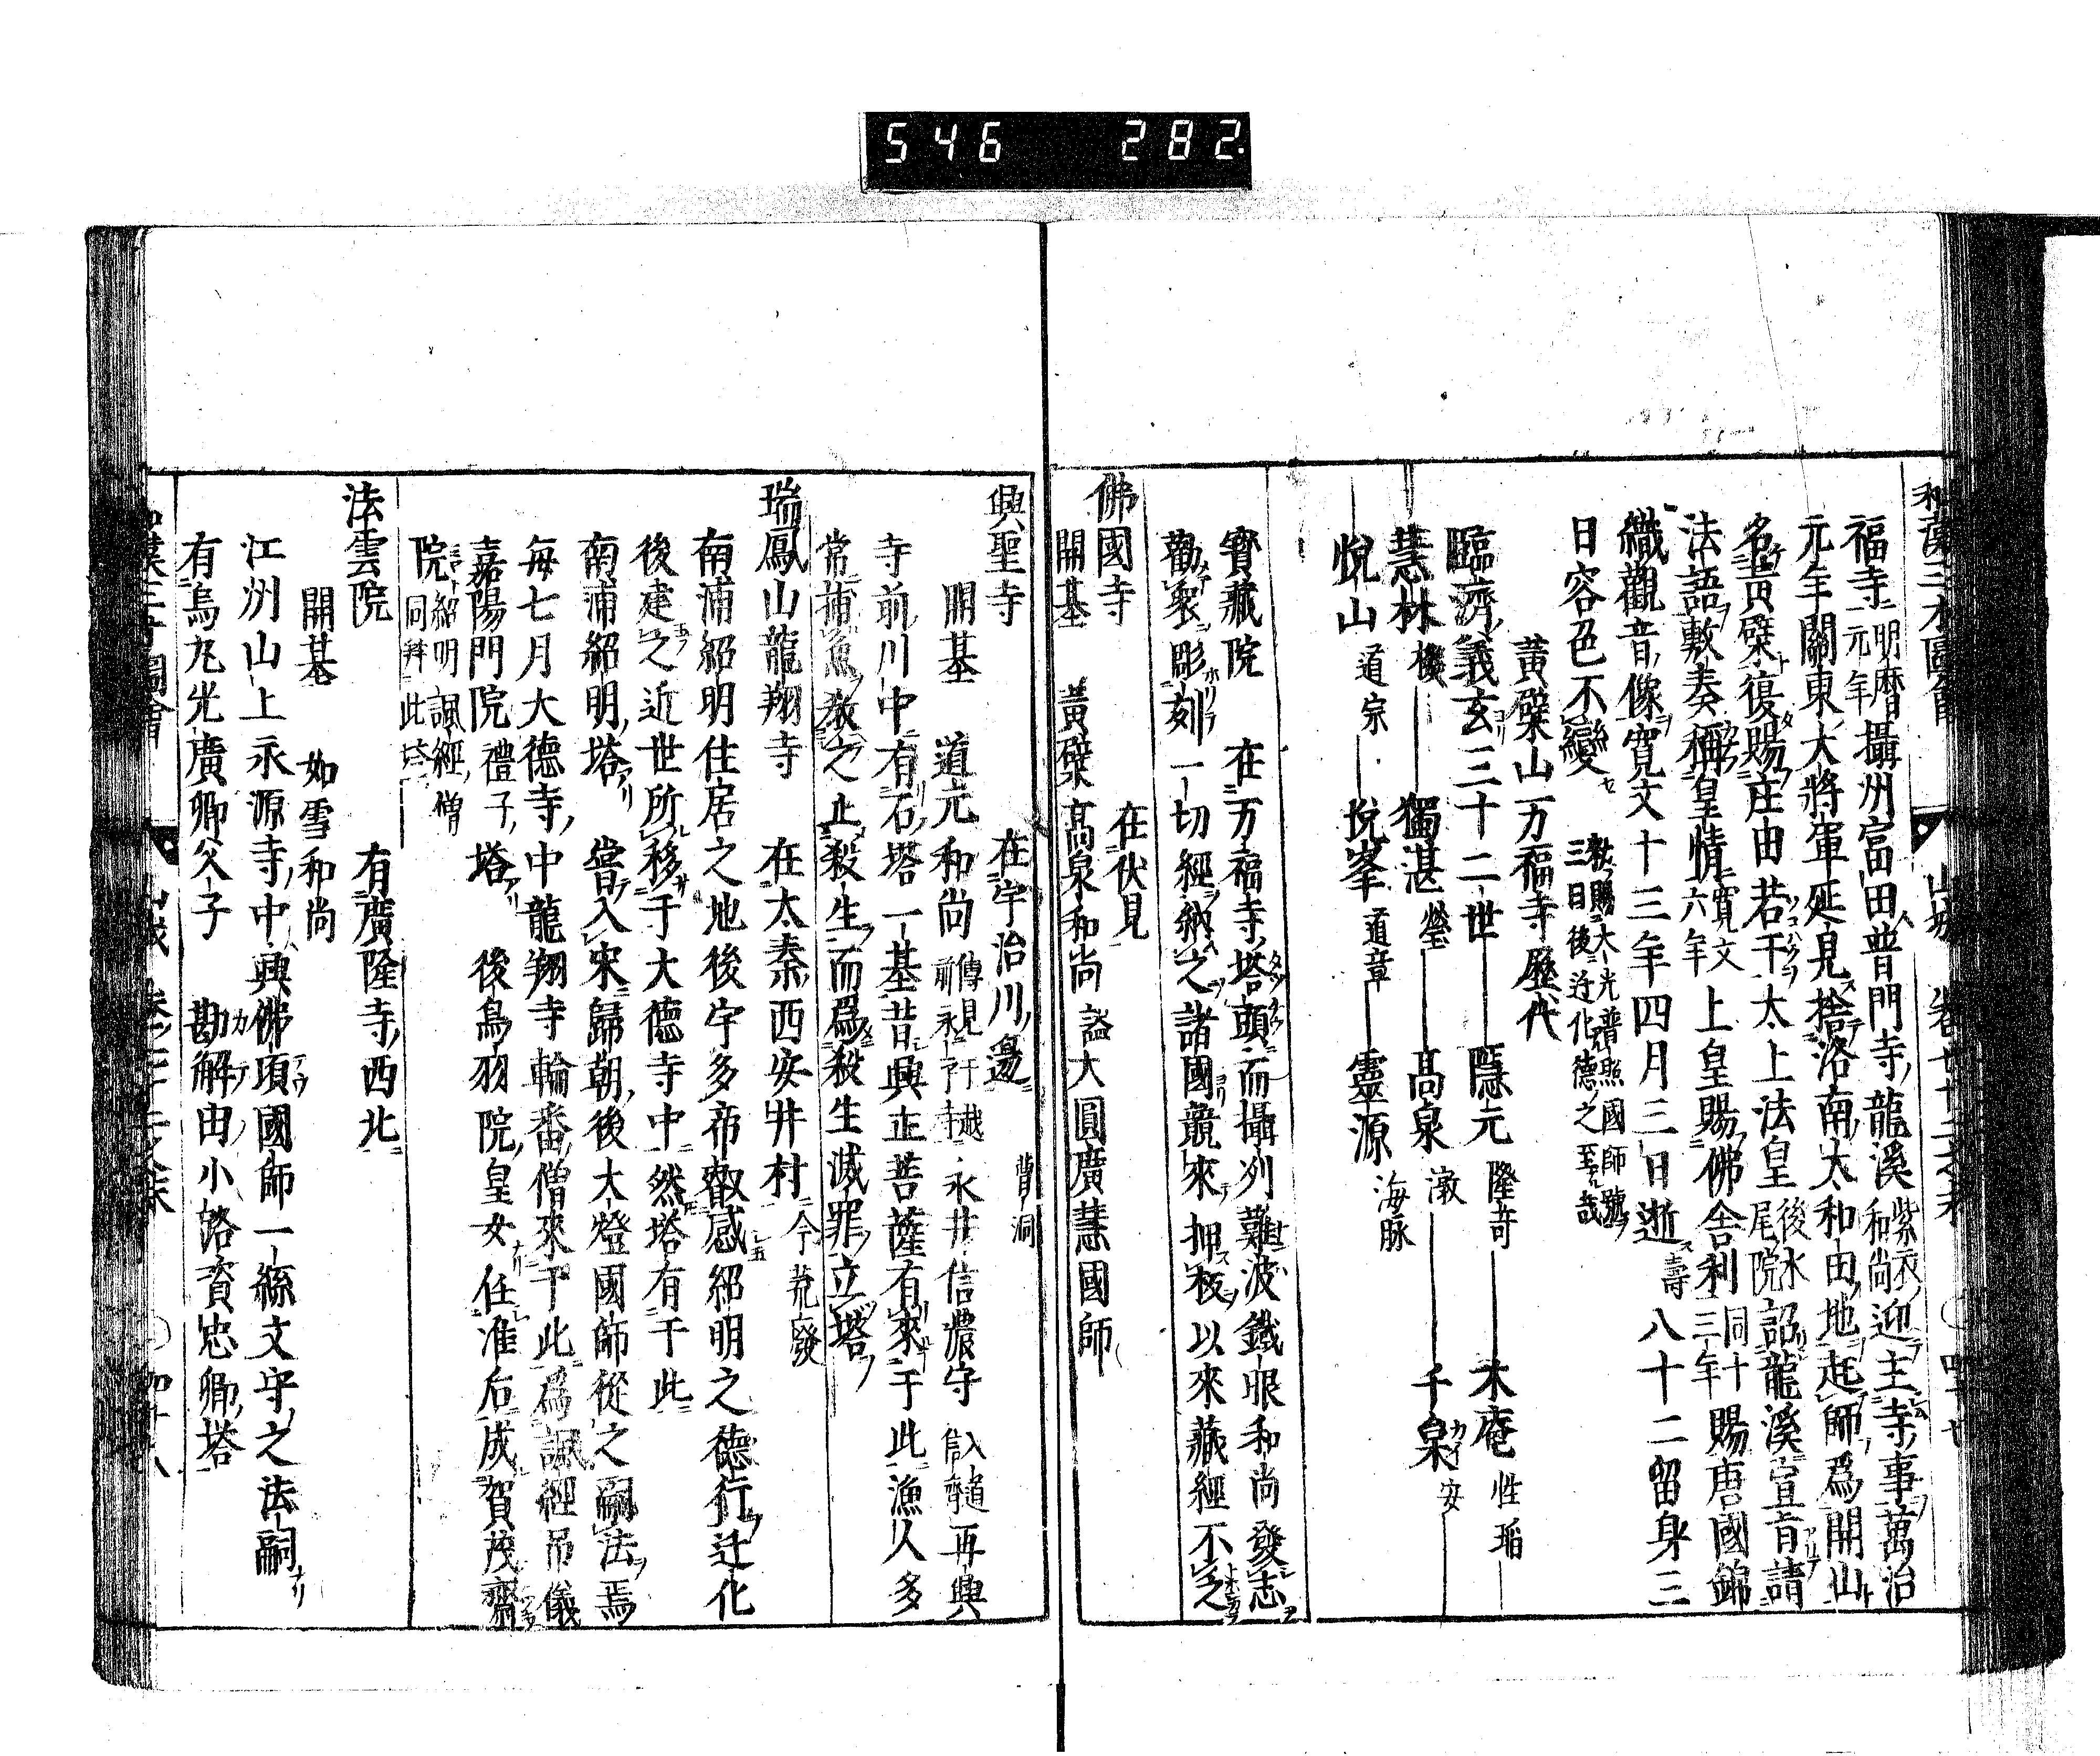 546 282.
和漢三才圖會 山城 卷七十二之末
福寺明暦元年攝州富田普門寺龍溪紫衣和尚迎主寺事萬治
元年關東大將軍延見捨洛南太和田地起師爲開山
名黃檗復賜庄田若干太上法皇後水尾院詔龍溪宣旨請
法語敷奏稱皇情寬文六年上皇賜佛舍利同十三年賜唐國錦
織觀音像寬文十三年四月三日逝壽八十二留身三
日容色不變敕賜大光普照國師號三日後迁化德之至哉
黃檗山万福寺歷代
臨濟義玄三十二世 隱元隆奇 木庵性瑫
慧林機 獨湛瑩 高泉潡 千呆安
悅山道宗 悅峯道章 靈源海脉
寳藏院 在万福寺塔頭而攝州難波鐵眼和尚發志
勸衆彫刻一切經納之諸國競來押板以來藏經不乏
佛國寺 在伏見
開基 黃檗高泉和尚 謚大圓廣慧國師
興聖寺 在宇治川邊 曹洞
開基 道元和尚 傳見于越前永平寺 永井信濃守 再興
寺前川中有石塔一基昔興正菩薩有來于此漁人多
常捕魚教之止殺生而爲殺生滅罪立塔
瑞鳳山龍翔寺 在太秦西安井村 今荒廢
南浦紹明住居之地後宇多帝叡感紹明之德行迁化
後建之近世所移于大德寺中然塔有于此
南浦紹明塔 嘗入宋歸朝後大燈國師從之嗣法焉
每七月大德寺中龍翔寺輪番僧來于此爲諷經吊儀
嘉陽門院禮子塔 後鳥羽院皇女任准后成賀茂齋
院紹明諷經僧同拜此塔
法雲院 有廣隆寺西北
開基 如雪和尚
江州山上永源寺中興佛頂國師一絲文守之法嗣
有烏丸光廣卿父子 勘解由小路資忠卿塔